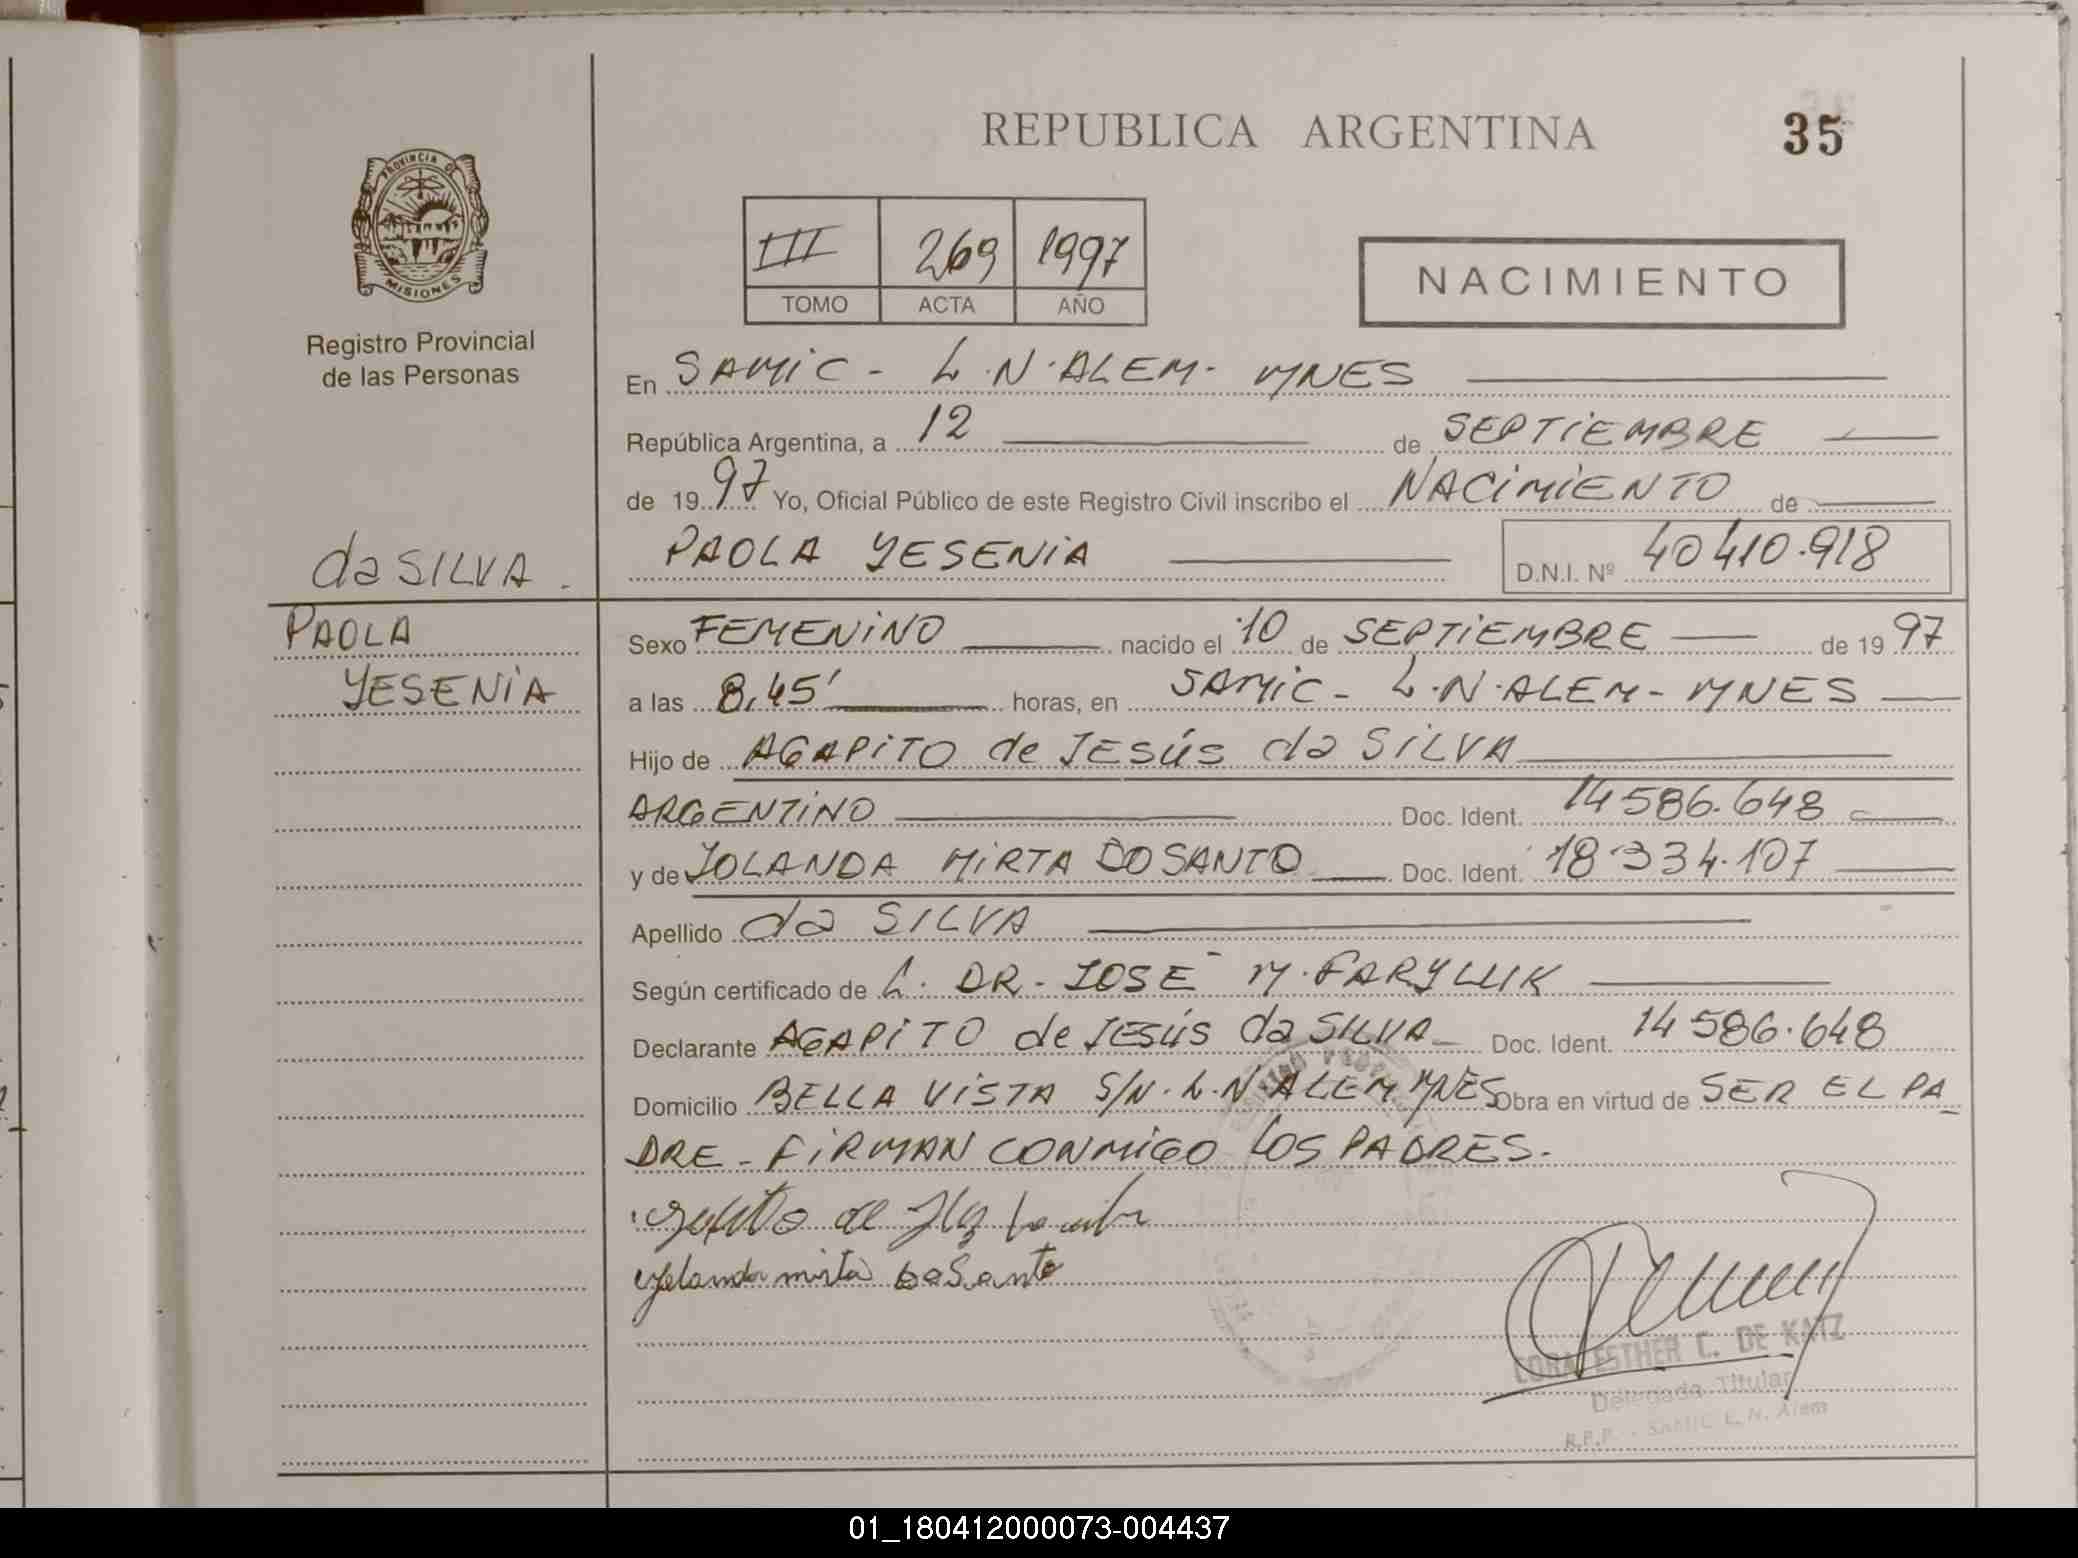 REPUBLICA ARGENTINA
35
PROVINCIA DE
MISIONES
Registro Provincial
de las Personas
III 269 1997
TOMO ACTA AÑO
NACIMIENTO
En SAMIC - L.N.ALEM- MNES
República Argentina, a 12 de SEPTIEMBRE
de 1997 Yo, Oficial Público de este Registro Civil inscribo el NACIMIENTO de
PAOLA YESENIA D.N.I. Nº 40410.918
da SILVA.
PAOLA
YESENIA
Sexo FEMENINO nacido el 10 de SEPTIEMBRE de 1997
a las 8,45' horas, en SAMIC- L.N.ALEM- MNES
Hijo de AGAPITO de JESÚS da SILVA
ARGENTINO Doc. Ident. 14586.648
y de YOLANDA MIRTA DOSANTO Doc. Ident. 18.334.107
Apellido da SILVA
Según certificado de L. DR. JOSE M. FARYLUK
Declarante AGAPITO de JESÚS da SILVA Doc. Ident. 14586.648
Domicilio BELLA VISTA S/N. L.N ALEM MNES Obra en virtud de SER EL PA_
DRE - FIRMAN CONMIGO LOS PADRES.
yolanda mirta doSanto
CORA ESTHER C. DE KATZ
Delegada Titular
R.P.P. - SAMIC L. N. Alem
01_180412000073-004437